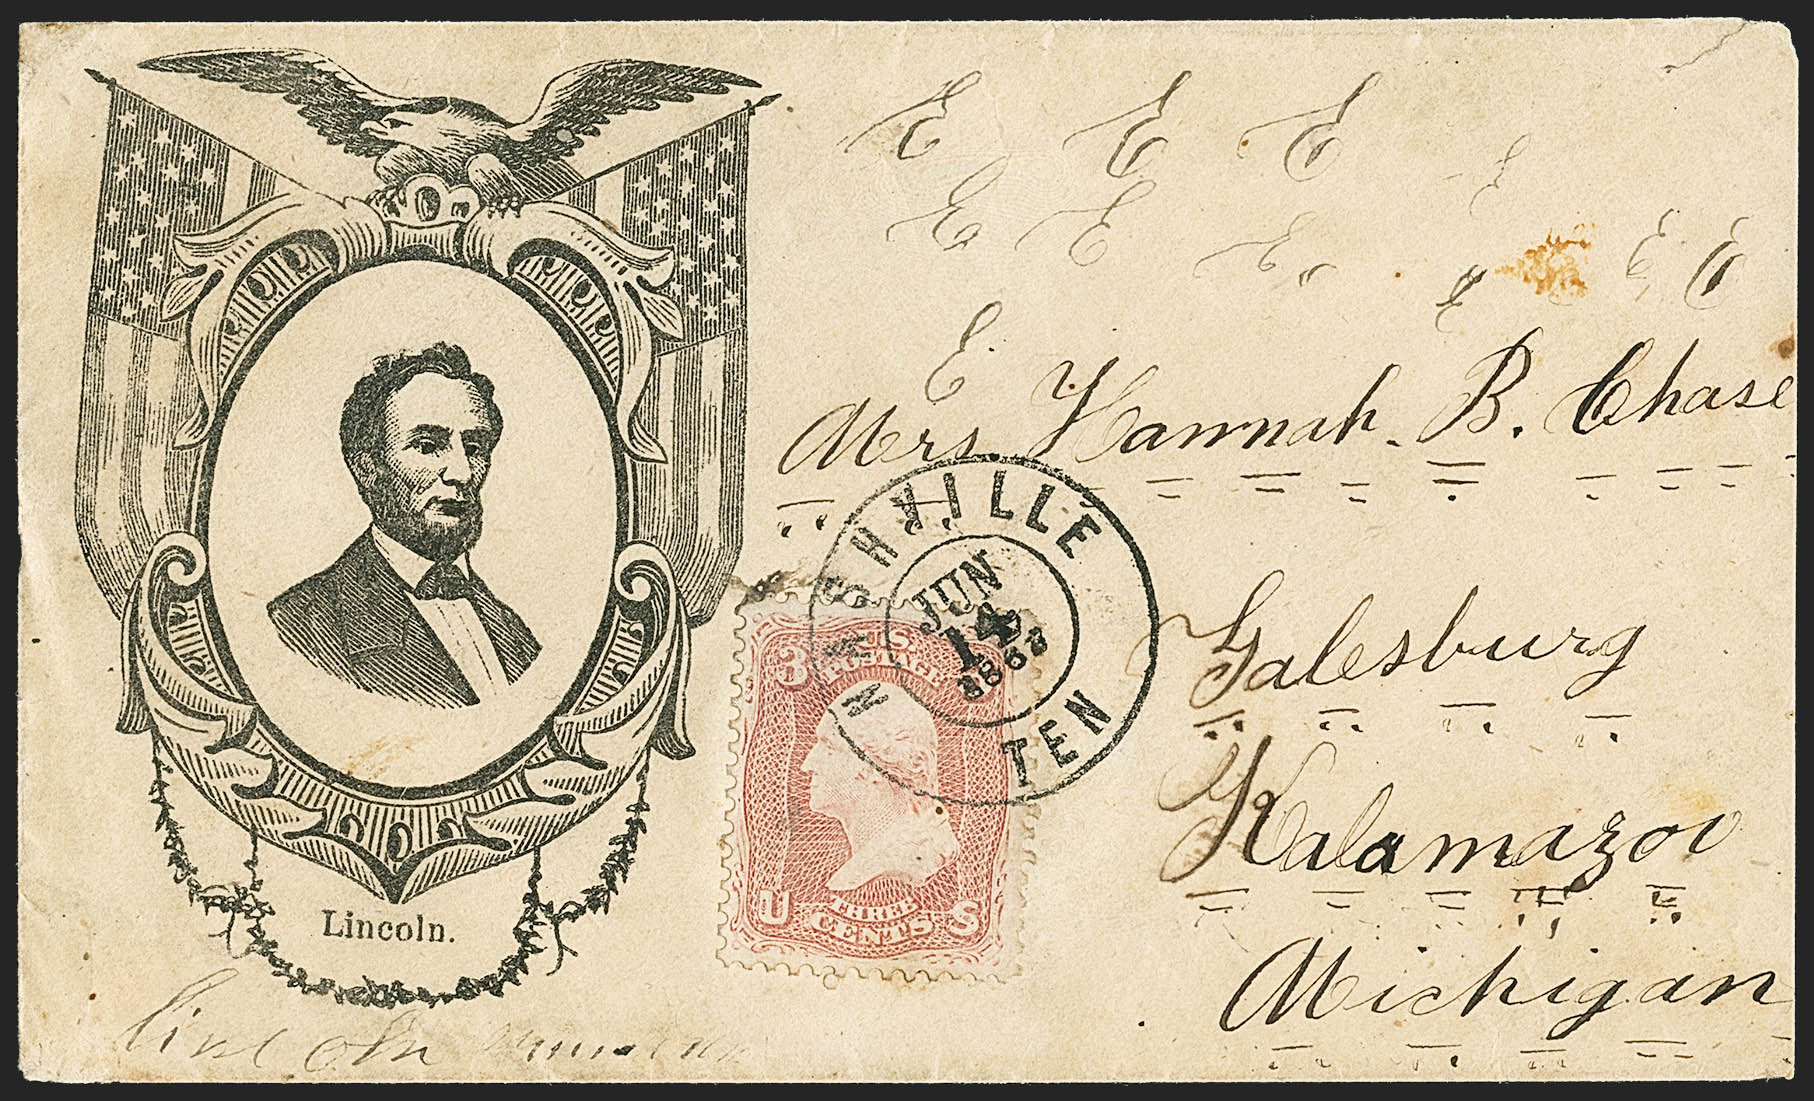 E E E E
E E E E E
E
E
Mrs. Hannah. B. Chase
Galesburg
Kalamazoo
Michigan
NASHVILLE
TEN
JUN
14
1863
3
U.S.
POSTAGE
U
THREE
CENTS
S
Lincoln.
Lincoln